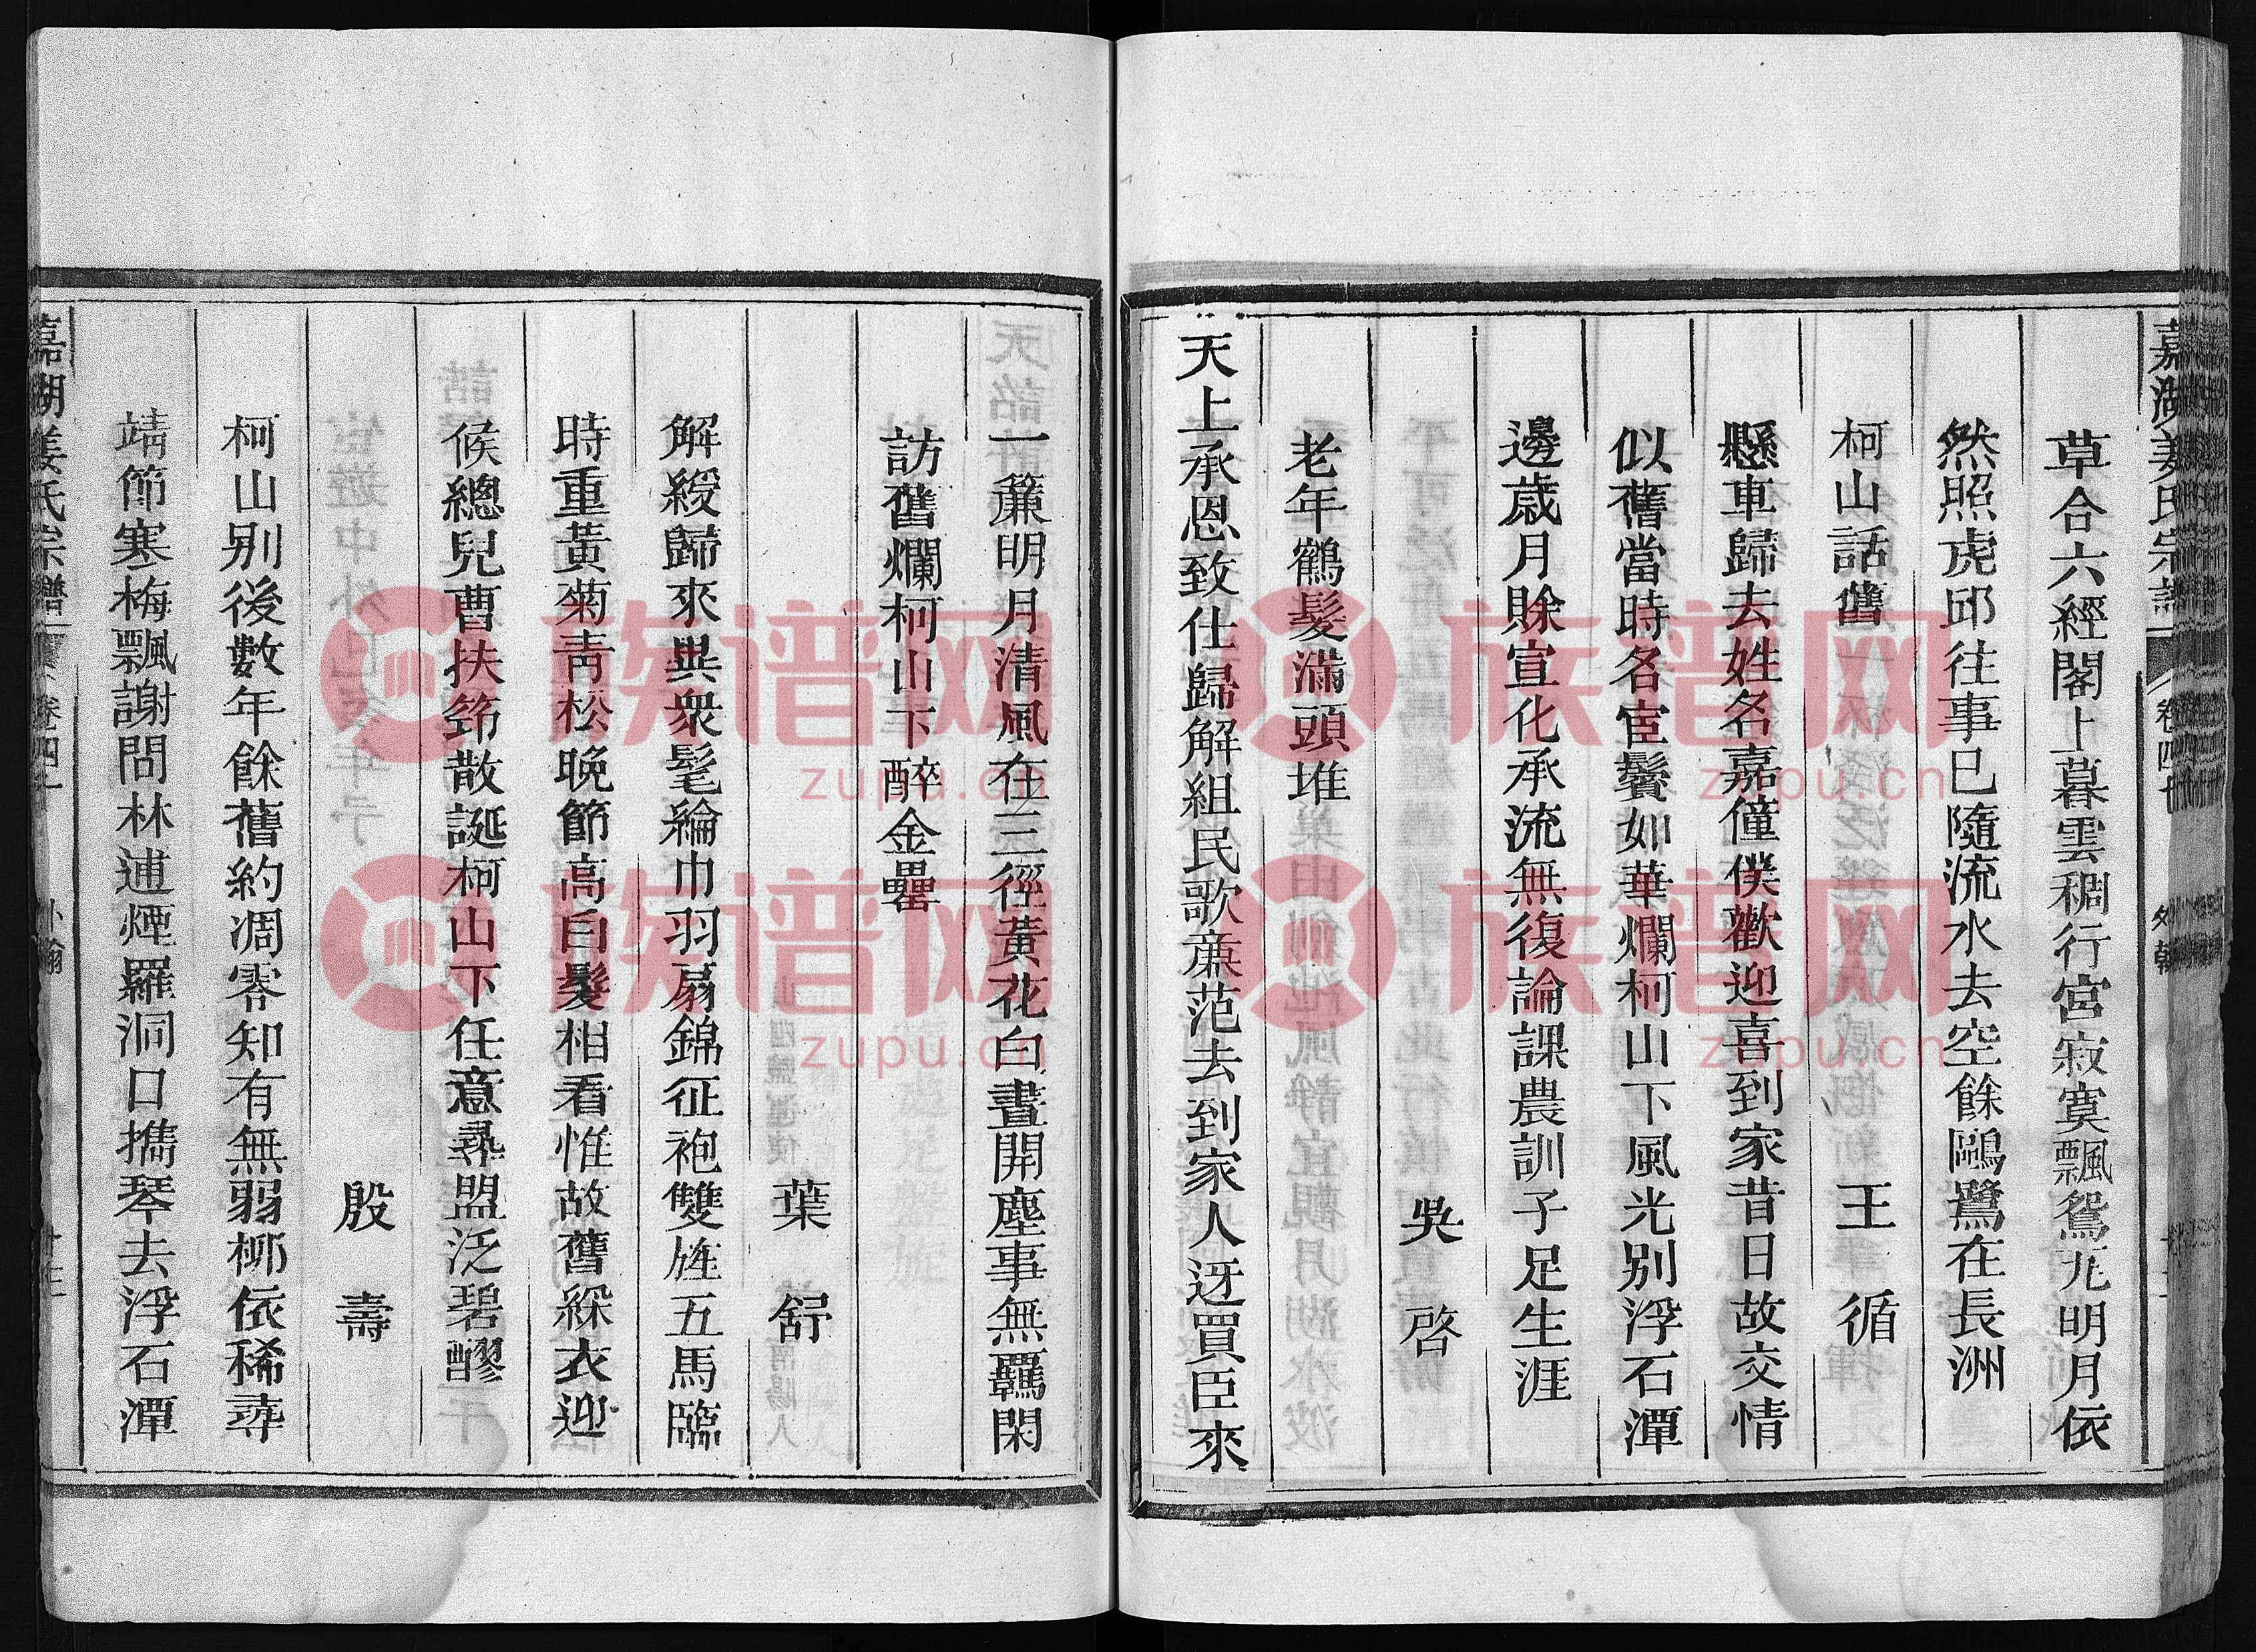 嘉湖姜氏宗譜 卷四十
草合六經閣上暮雲稠行宮寂寞飄鴛瓦明月依
然照虎邱往事已隨流水去空餘鷗鷺在長洲
柯山話舊 王循
懸車歸去姓名嘉僮僕歡迎喜到家昔日故交情
似舊當時名宦鬢如華爛柯山下風光別浮石潭
邊歲月賒宣化承流無復論課農訓子足生涯
吳啓
老年鶴髮滿頭堆
天上承恩致仕歸解組民歌廉范去到家人迓買臣來
一簾明月清風在三徑黃花白晝開塵事無羈閑
訪舊爛柯山下醉金罍
葉舒
解綬歸來與衆髦綸巾羽扇錦征袍雙旌五馬臨
時重黃菊青松晚節高白髮相看惟故舊綵衣迎
候總兒曹扶笻散誕柯山下任意尋盟泛碧醪
殷壽
柯山别後數年餘舊約凋零知有無弱栁依稀尋
靖節寒梅飄謝問林逋煙羅洞口攜琴去浮石潭
嘉湖姜氏宗譜 卷四十
族谱网
zupu.cn
族谱网
zupu.cn
族谱网
zupu.cn
族谱网
zupu.cn